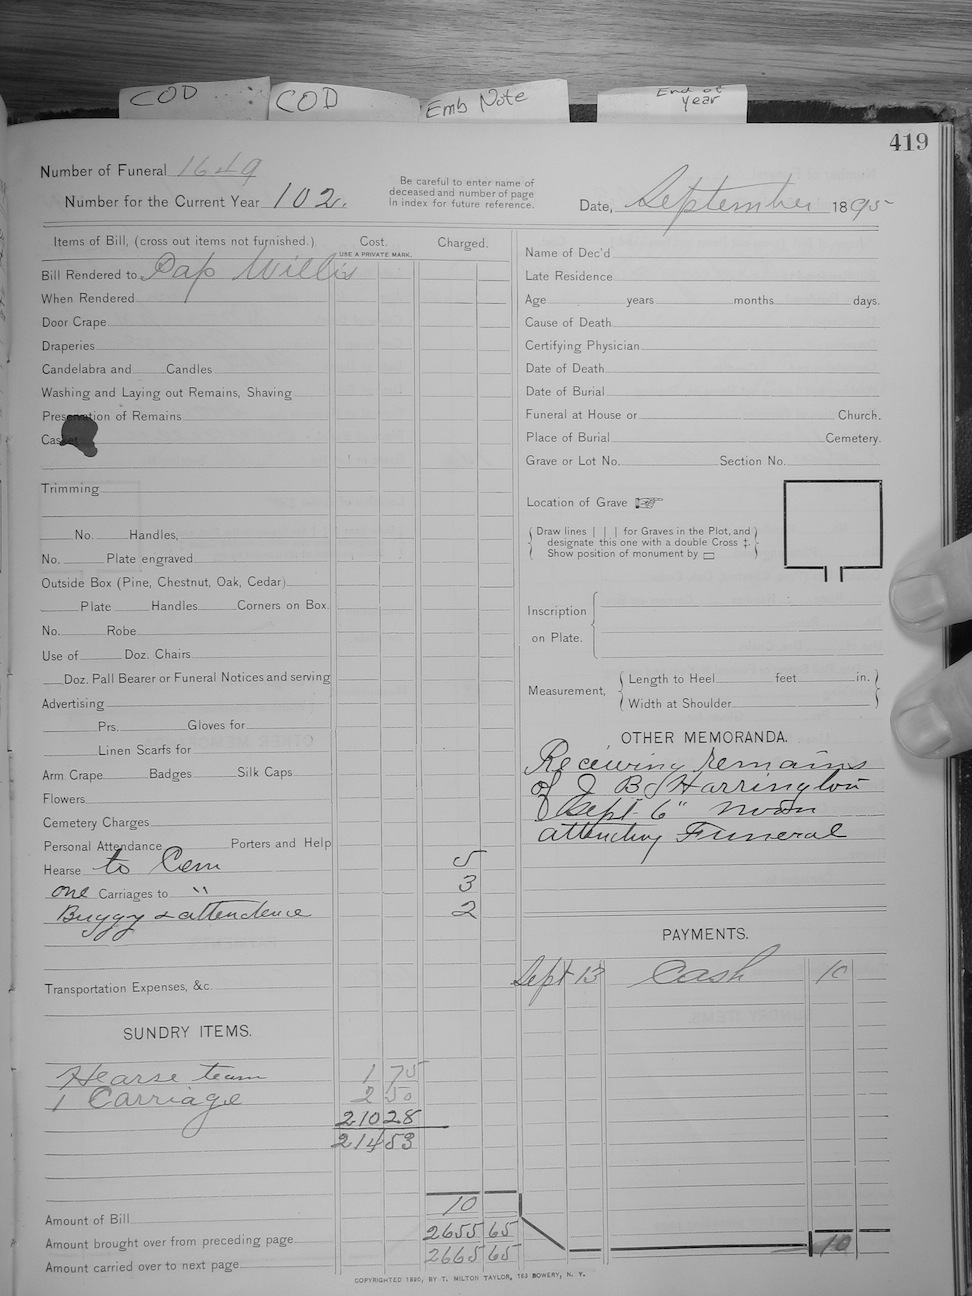 COD
COD
Emb Note
End of
year
419
Number of Funeral 1649
Number for the Current Year 102.
Be careful to enter name of
deceased and number of page
in index for future reference.
Date, September 1895
Items of Bill, (cross out items not furnished.) Cost. Charged.
USE A PRIVATE MARK.
Bill Rendered to Cap Willis
When Rendered
Door Crape
Draperies
Candelabra and Candles
Washing and Laying out Remains, Shaving
Preservation of Remains
Casket
Trimming
No. Handles,
No. Plate engraved
Outside Box (Pine, Chestnut, Oak, Cedar)
Plate Handles Corners on Box.
No. Robe
Use of Doz. Chairs
Doz. Pall Bearer or Funeral Notices and serving
Advertising
Prs. Gloves for
Linen Scarfs for
Arm Crape Badges Silk Caps
Flowers
Cemetery Charges
Personal Attendance Porters and Help
Hearse to Cem 5
one Carriages to " 3
Buggy & attendence 2
Transportation Expenses, &c.
SUNDRY ITEMS.
Hearse team 1 75
1 Carriage 2 50
210 28
214 53
Amount of Bill 10
Amount brought over from preceding page 2655 65
Amount carried over to next page 2665 65
Name of Dec'd
Late Residence
Age years months days.
Cause of Death
Certifying Physician
Date of Death
Date of Burial
Funeral at House or Church.
Place of Burial Cemetery.
Grave or Lot No. Section No.
Location of Grave
Draw lines | | | for Graves in the Plot, and
designate this one with a double Cross ‡.
Show position of monument by ▭
Inscription
on Plate.
Measurement, Length to Heel feet in.
Width at Shoulder
OTHER MEMORANDA.
Receiving remains
of J B Harrington
Sept 6" noon
attending Funeral
PAYMENTS.
Sept 13 Cash 10
10
COPYRIGHTED 1890, BY T. MILTON TAYLOR, 163 BOWERY, N. Y.